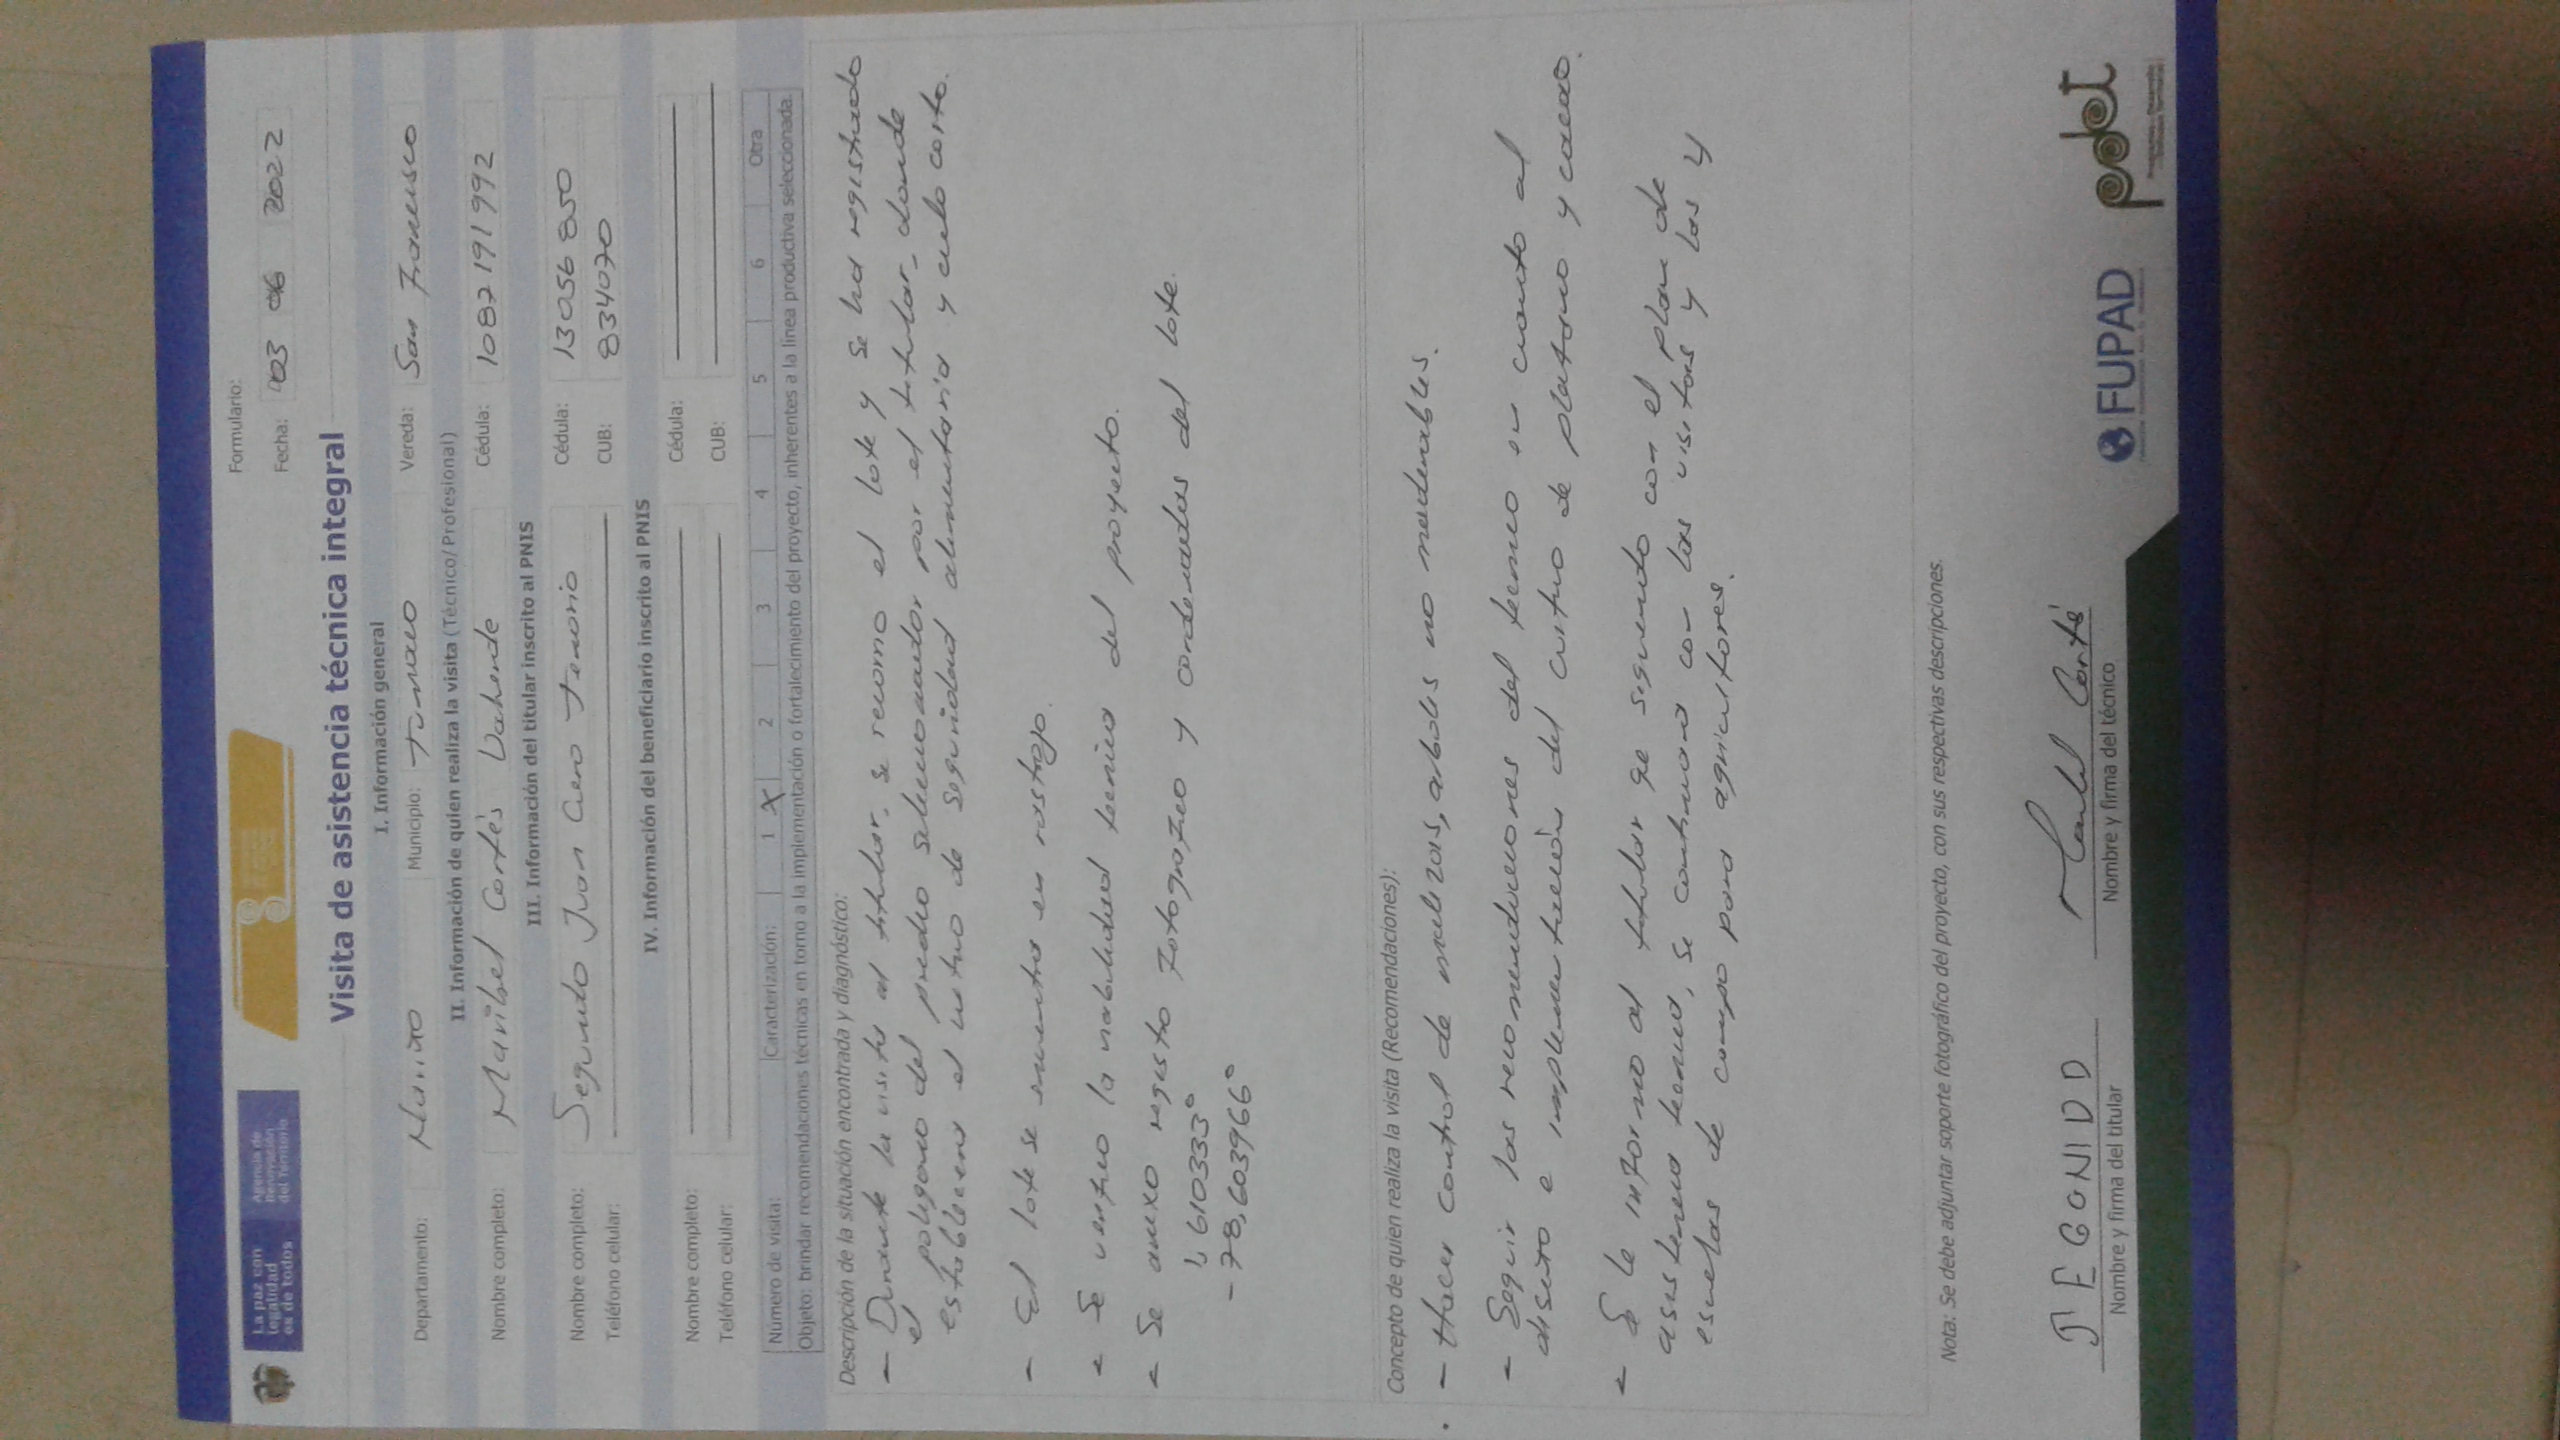 La paz con
legalidad
es de todos
Agencia de
Renovación
del Territorio
Formulario:
Fecha: 03 06 2022
Visita de asistencia técnica integral
I. Información general
Departamento: Nariño Municipio: Tumaco Vereda: San Francisco
II. Información de quien realiza la visita (Técnico/ Profesional)
Nombre completo: Maribel Cortés Cédula: 1087191992
III. Información del titular inscrito al PNIS
Nombre completo: Segundo Juan Tenorio Cédula: 13056850
Teléfono celular: CUB: 834070
IV. Información del beneficiario inscrito al PNIS
Nombre completo: Cédula:
Teléfono celular: CUB:
Número de visita: Caracterización: 1 X 2 3 4 5 6 Otra
Objeto: brindar recomendaciones técnicas en torno a la implementación o fortalecimiento del proyecto, inherentes a la línea productiva seleccionada.
Descripción de la situación encontrada y diagnóstico:
- Durante la visita al titular, se recorrio el lote y se ha registrado
el poligono del predio seleccionado por el titular, donde
establecera el cultivo de seguridad alimentaria y ciclo corto.
- El lote se encuentra en rastrojo.
- Se verifico la viabilidad tecnica del proyecto.
- Se anexo registro fotografico y cordenadas del lote.
1,610333°
-78,603966°
Concepto de quien realiza la visita (Recomendaciones):
- Hacer control de malezas, arboles no maderables.
- Seguir las recomendaciones del tecnico en cuanto al
diseño e implementación del cultivo de platano y cacao.
- Se le informo al titular qe siguiendo con el plan de
asistencia tecnica, se continuara con las visitas y las
escuelas de campo para agricultores.
Nota: Se debe adjuntar soporte fotográfico del proyecto, con sus respectivas descripciones.
Nombre y firma del titular
Cortés
Nombre y firma del técnico
FUPAD
pdet